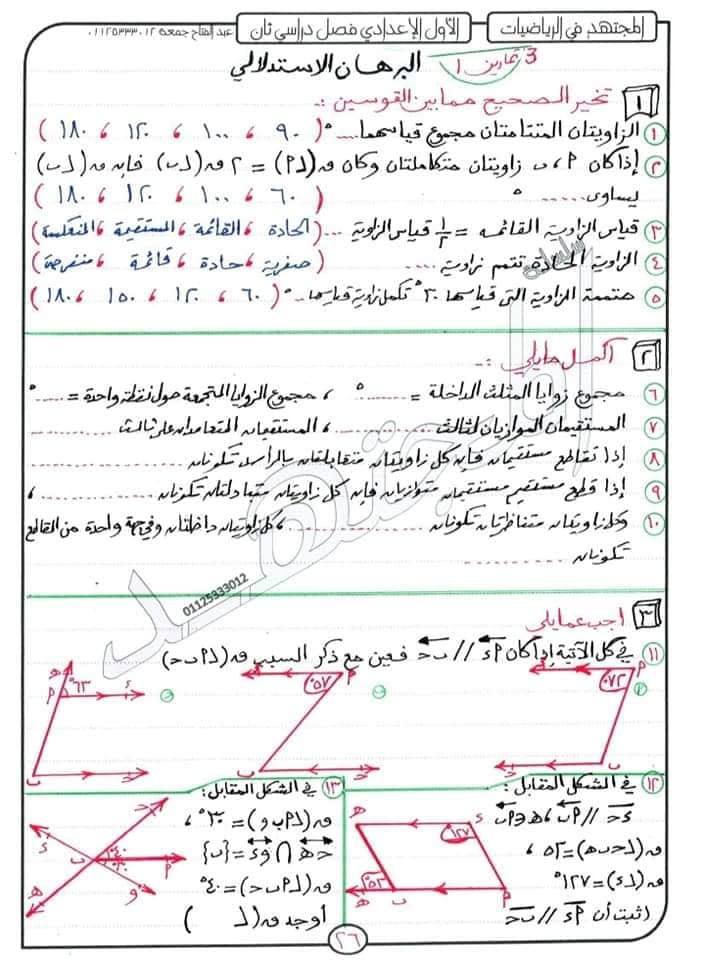 المجتهد في الرياضيات
الأول الإعدادي فصل دراسي ثان
عبد الفتاح جمعة ٠١١٢٥٣٣٣٠١٢
تمارين ١ 3
البرهان الاستدلالي
١ تخير الصحيح مما بين القوسين :-
١ الزاويتان المتتامتان مجموع قياسهما .....° ( ٩٠ ، ١٠٠ ، ١٢٠ ، ١٨٠ )
٢ إذا كان P ، ب زاويتان متكاملتان وكان ق(P∠) = ٢ ق(∠ب) فإن ق(∠ب)
يساوى ...... ° ( ٦٠ ، ١٠٠ ، ١٢٠ ، ١٨٠ )
٣ قياس الزاوية القائمة = ½ قياس الزاوية ... (الحادة ، القائمة ، المستقيمة ، المنعكسة)
٤ الزاوية الحادة تتمم زاوية .... (صفرية ، حادة ، قائمة ، منفرجة)
٥ متممة الزاوية التى قياسها ٣٠° تكمل زاوية قياسها ...° ( ٦٠ ، ١٢٠ ، ١٥٠ ، ١٨٠ )
٢ أكمل ما يلي :-
٦ مجموع زوايا المثلث الداخلة = ......° ، مجموع الزوايا المتجمعة حول نقطة واحدة = .....°
٧ المستقيمان الموازيان لثالث .......... ، المستقيمان المتعامدان على ثالث ..........
٨ إذا تقاطع مستقيمان فإن كل زاويتان متقابلتان بالرأس تكونان ..........
٩ إذا قطع مستقيم مستقيمان متوازيان فإن كل زاويتان متبادلتان تكونان .......... ،
١٠ وكل زاويتان متناظرتان تكونان .......... ، كل زاويتان داخلتان وفي جهة واحدة من القاطع
تكونان ..........
01125333012
٣ اجب عما يلي
١١ في كل الآتية إذا كان P٤ // ب ح فعين مع ذكر السبب ق(∠P ب ح)
P ٧٢° ب ح
P ٥٧° ب ح
ه P ٦٣° ء ب ح
١٢ في الشكل المقابل :
ء ح // P ب ، ه ∈ P ب
ق(∠ح ب ه) = ٥٣ ،
ق(∠ء) = ١٢٧°
إثبت أن P ء // ب ح
ء ١٢٧° P ب ٥٣° ه
١٣ في الشكل المقابل :
ق(∠P ب و) = ٣٠° ،
ح ه ∩ و ء = {ب}
ق(∠P ب ح) = ٤٠°
أوجد ق(∠ )
ح ء ب ٤٠° ٣٠° P و ه
٢٦